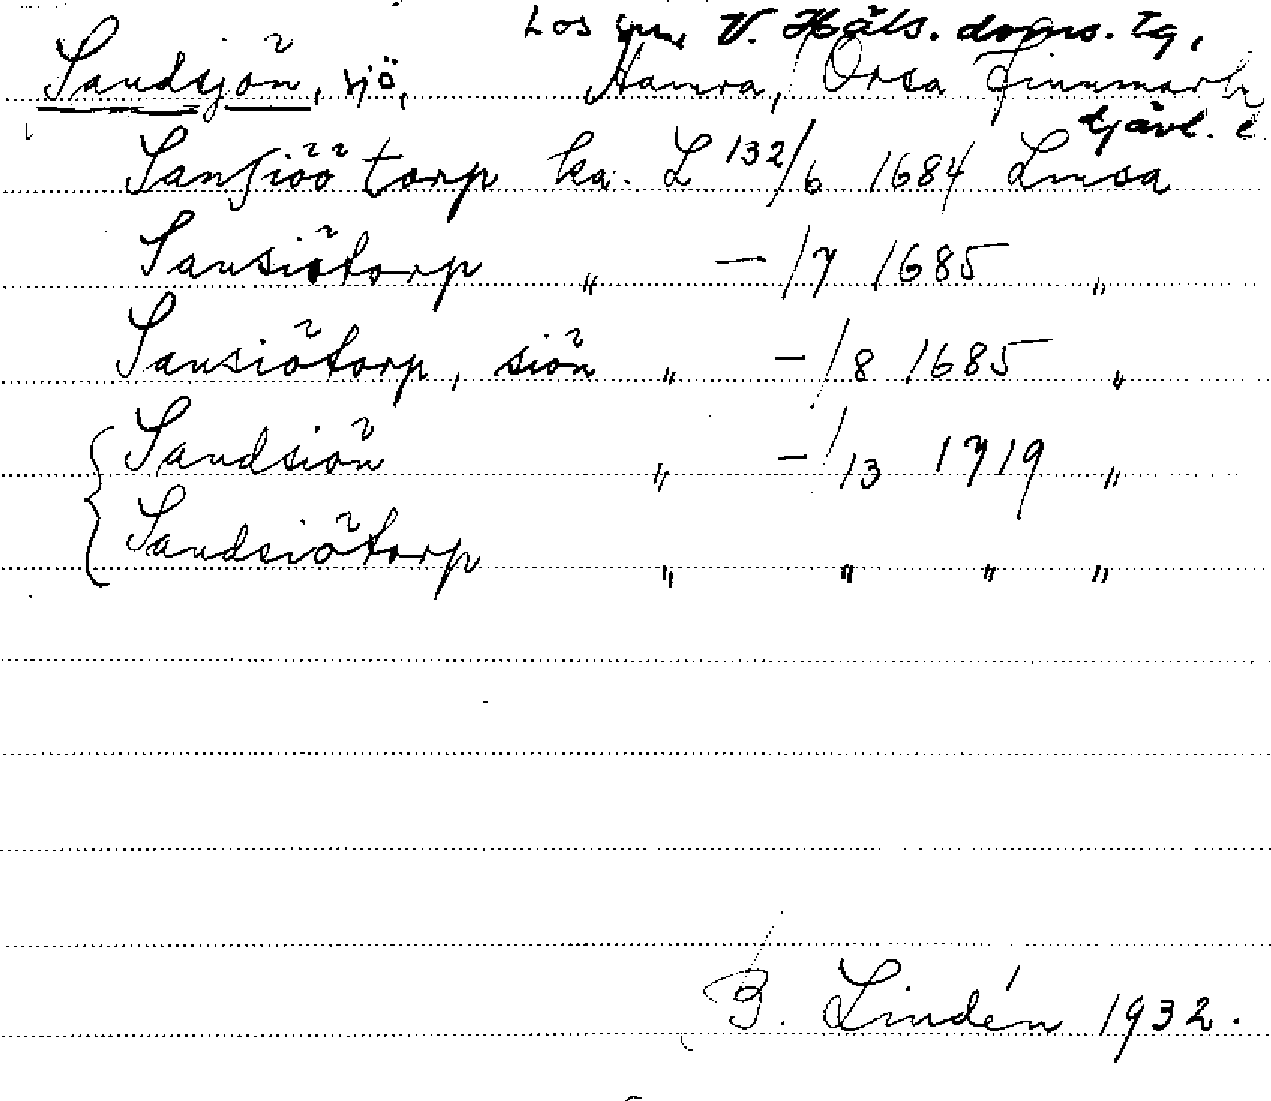 Los sn, V. Häls. doms. tg,
Sandsjön, sjö, Hamra, Orsa Finnmark
Gävl. l.
Sansiöö torp ka. L 132/6 1684 Lmsa
Sansiötorp " — /7 1685 "
Sansiötorp, siön " — /8 1685 "
Sandsiön " — /13 1719 "
Sandsiötorp " " " "
B. Lindén 1932.